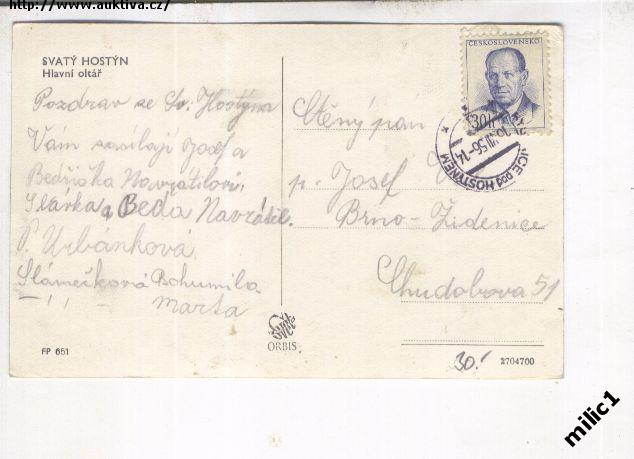 http://www.auktiva.cz/
SVATÝ HOSTÝN
Hlavní oltář
Pozdrav ze Sv. Hostýna
Vám zasílají Josef a
Bedřiška Navrátilovi,
Slávka a Béďa Navrátil.
P. Urbánková
Slámečková Bohumila
— '' — Marta
FP 651
ORBIS
ČESKOSLOVENSKO
30h
ICE pod HOSTÝNEM
56-14
Ctěný pan
p. Josef
Brno-Židenice
Chudobova 51
30.-
2704700
milic1